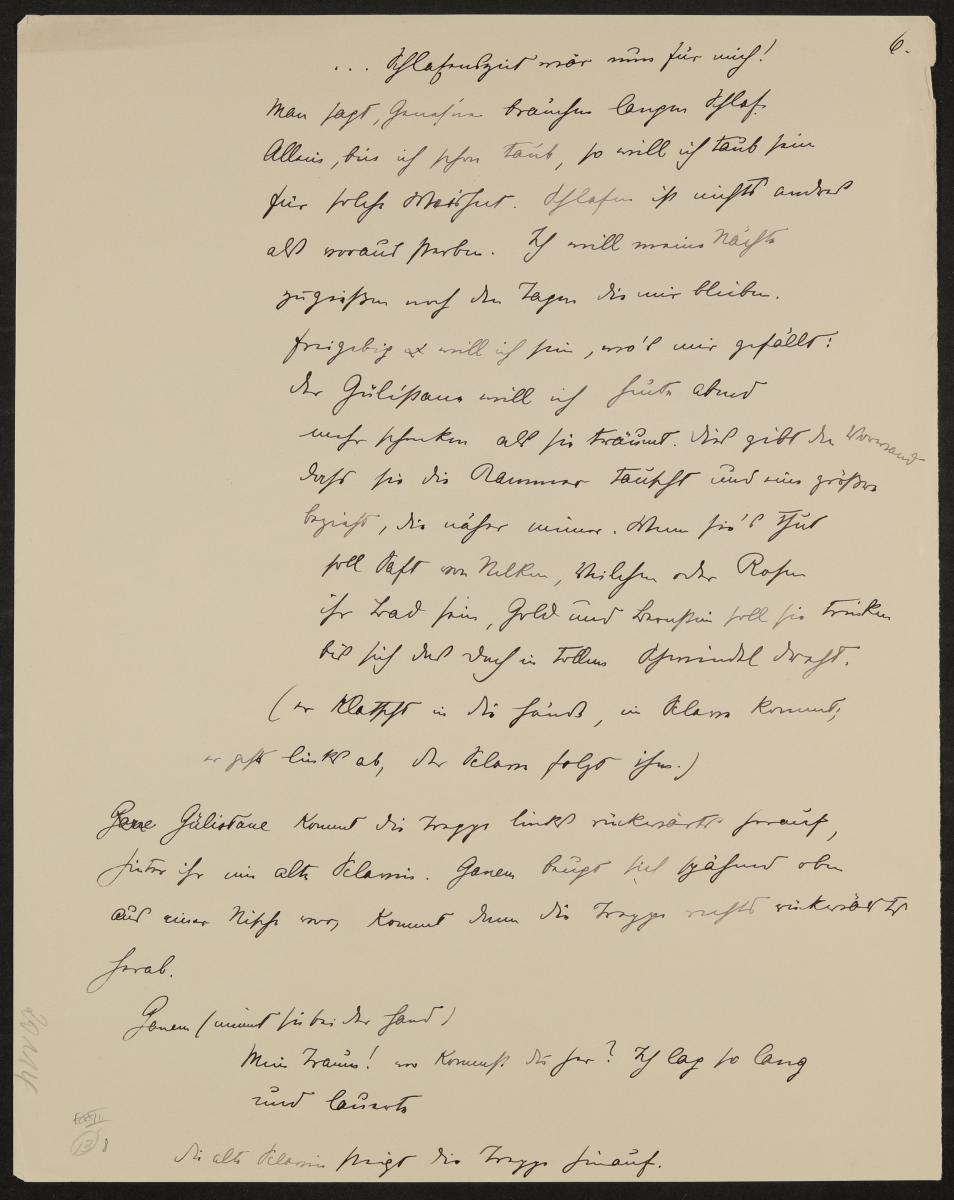 6.
... Schlafenszeit wär nun für mich!
Man sagt, Genesene bräuchen langen Schlaf.
Allein, bin ich schon taub, so will ich taub sein
für solche Weisheit. Schlafen ist nichts andres
als voraus sterben. Ich will meine Nächte
zugießen noch den Tagen die mir bleiben.
freigebig will ich sein, wo's mir gefällt:
der Gülistane will ich heute abend
mehr schenken als sie träumt. Dies gibt den Vorwand
dass sie die Kammer tauscht und eine größere
bezieht, die näher meiner. Wenn sie's thut
soll Saft von Nelken, Veilchen oder Rosen
ihr Bad sein, Gold und Bernstein soll sie trinken
bis sich das Dach in tollem Schwindel dreht.
(er klatscht in die Hände, ein Sclave kommt,
er geht links ab, der Sclave folgt ihm.)
Gülistane kommt die Treppe links rückwärts herauf,
hinter ihr eine alte Sclavin. Ganem beugt sich spähend oben
aus einer Nische vor, kommt dann die Treppe rechts rückwärts
herab.
Ganem (nimmt sie bei der Hand)
Mein Traum! wo kommst du her? Ich lag so lang
und lauerte
die alte Sclavin steigt die Treppe hinauf.
13